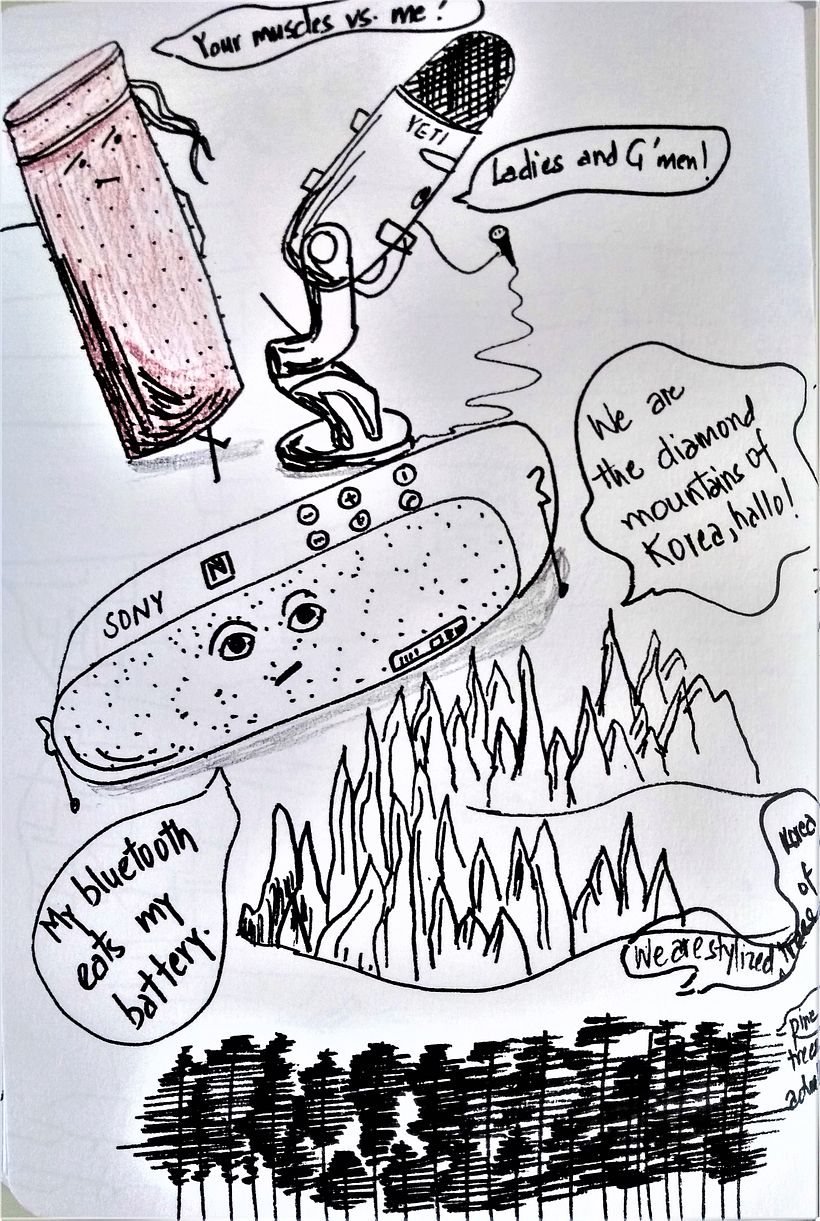 Your muscles vs. me!
YETI
Ladies and G'men!
We are
the diamond
mountains of
Korea, hallo!
SONY
N
My bluetooth
eats my
battery.
We are stylized
of
Korea
pine
trees